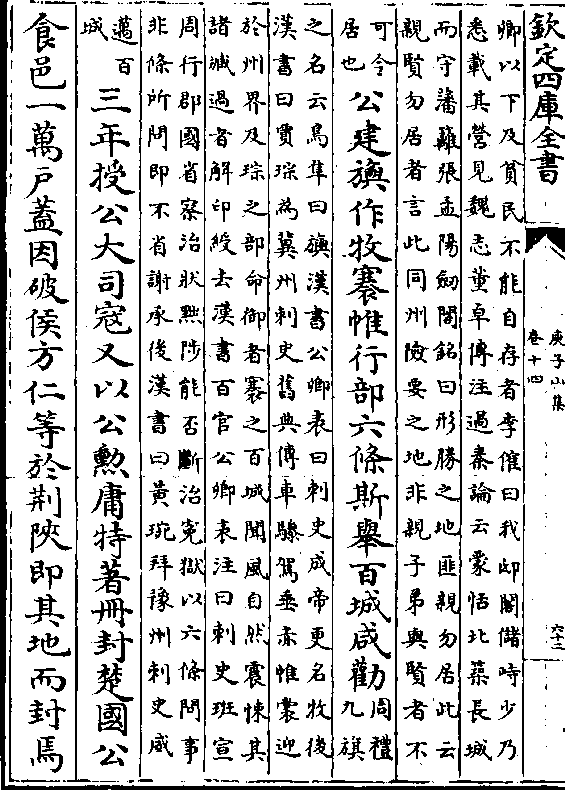 欽定四庫全書
庚子山集
卷十四
六十三
卿以下及貧民不能自存者李傕曰我邸閣儲峙少乃
悉載其營見魏志董卓傳注過秦論云蒙恬北築長城
而守藩籬張孟陽劒閣銘曰形勝之地匪親勿居此云
親賢勿居者言此同州險要之地非親子弟與賢者不
可令
居也
公建旟作牧褰帷行部六條斯舉百城咸勸
周禮
九旗
之名云鳥隼曰旟漢書公卿表曰刺史成帝更名牧後
漢書曰賈琮為冀州刺史舊典傳車驂駕垂赤帷裳迎
於州界及琮之部命御者褰之百城聞風自然震悚其
諸贓過者解印綬去漢書百官公卿表注曰刺史班宣
周行郡國省察治狀黜陟能否斷治寃獄以六條問事
非條所問即不省謝承後漢書曰黄琬拜豫州刺史威
邁百
城
三年授公大司寇又以公勲庸特著冊封楚國公
食邑一萬戸蓋因破侯方仁等於荆陜即其地而封焉